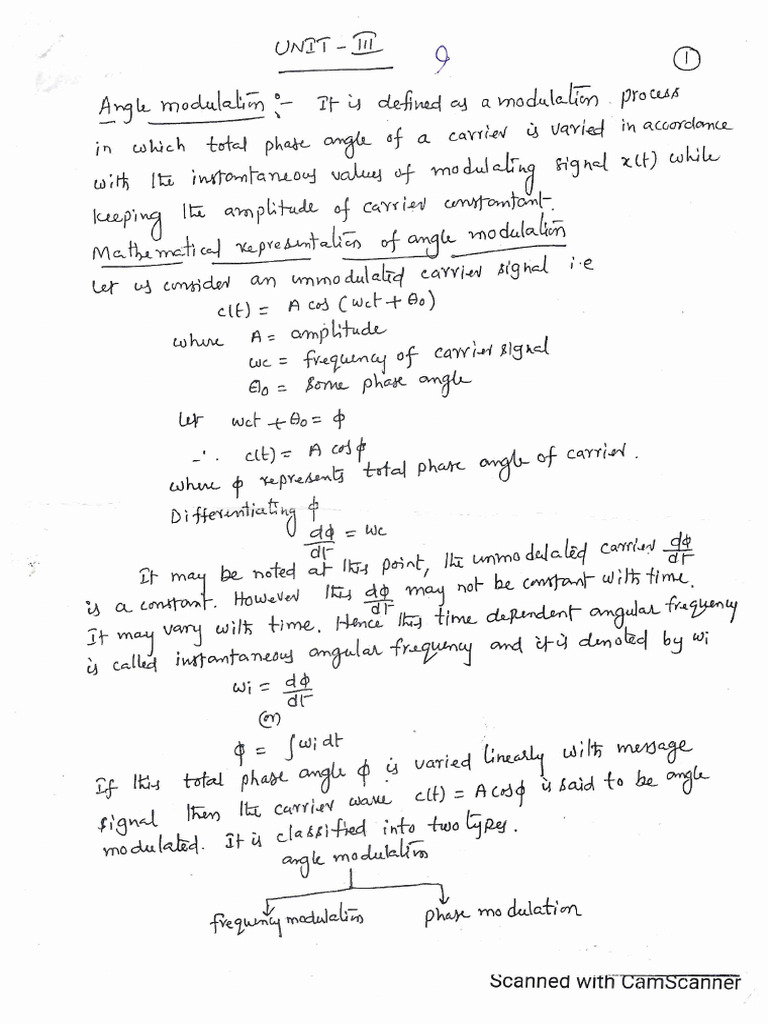 UNIT - III
9
1
Angle modulation :- It is defined as a modulation process
in which total phase angle of a carrier is varied in accordance
with the instantaneous values of modulating signal x(t) while
keeping the amplitude of carrier constantant.
Mathematical representation of angle modulation
Let us consider an unmodulated carrier signal i.e
c(t) = A cos (wct + θ0)
where A = amplitude
wc = frequency of carrier signal
θ0 = some phase angle
let wct + θ0 = ϕ
∴ c(t) = A cosϕ
where ϕ represents total phase angle of carrier.
Differentiating ϕ
dϕ/dt = wc
It may be noted at this point, the unmodulated carrier dϕ/dt
is a constant. However this dϕ/dt may not be constant with time.
It may vary with time. Hence this time dependent angular frequency
is called instantaneous angular frequency and it is denoted by wi
wi = dϕ/dt
(or)
ϕ = ∫wi dt
If this total phase angle ϕ is varied linearly with message
signal then the carrier wave c(t) = A cosϕ is said to be angle
modulated. It is classified into two types.
angle modulation
frequency modulation phase modulation
Scanned with CamScanner